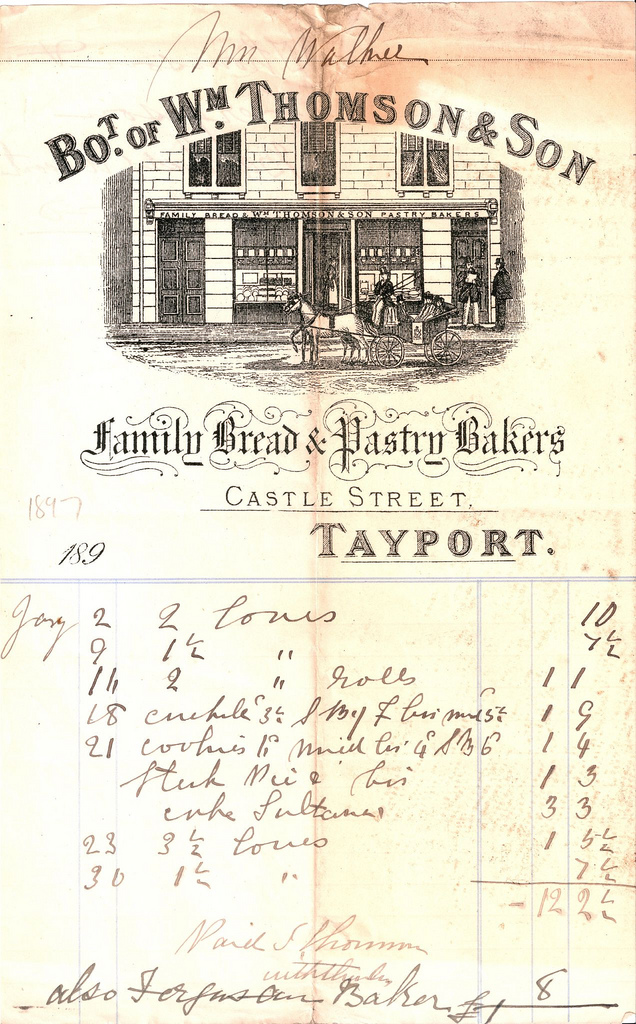 Mrs Walker
BOT. OF WM. THOMSON & SON
FAMILY BREAD & WM THOMSON & SON PASTRY BAKERS
Family Bread & Pastry Bakers
CASTLE STREET,
1897
TAYPORT.
189
Jany 2 2 loves 10
9 1½ " 7½
14 2 " rolls 1 1
18 3½ S B 1 9
21 cookies mixed bis S B 6 1 4
Steak Pie & bis 1 3
cake Sultana 3 3
23 3½ loves 1 5½
30 1½ " 7½
- 12 2½
Paid Thomson
with thanks
also Ferguson Baker 8